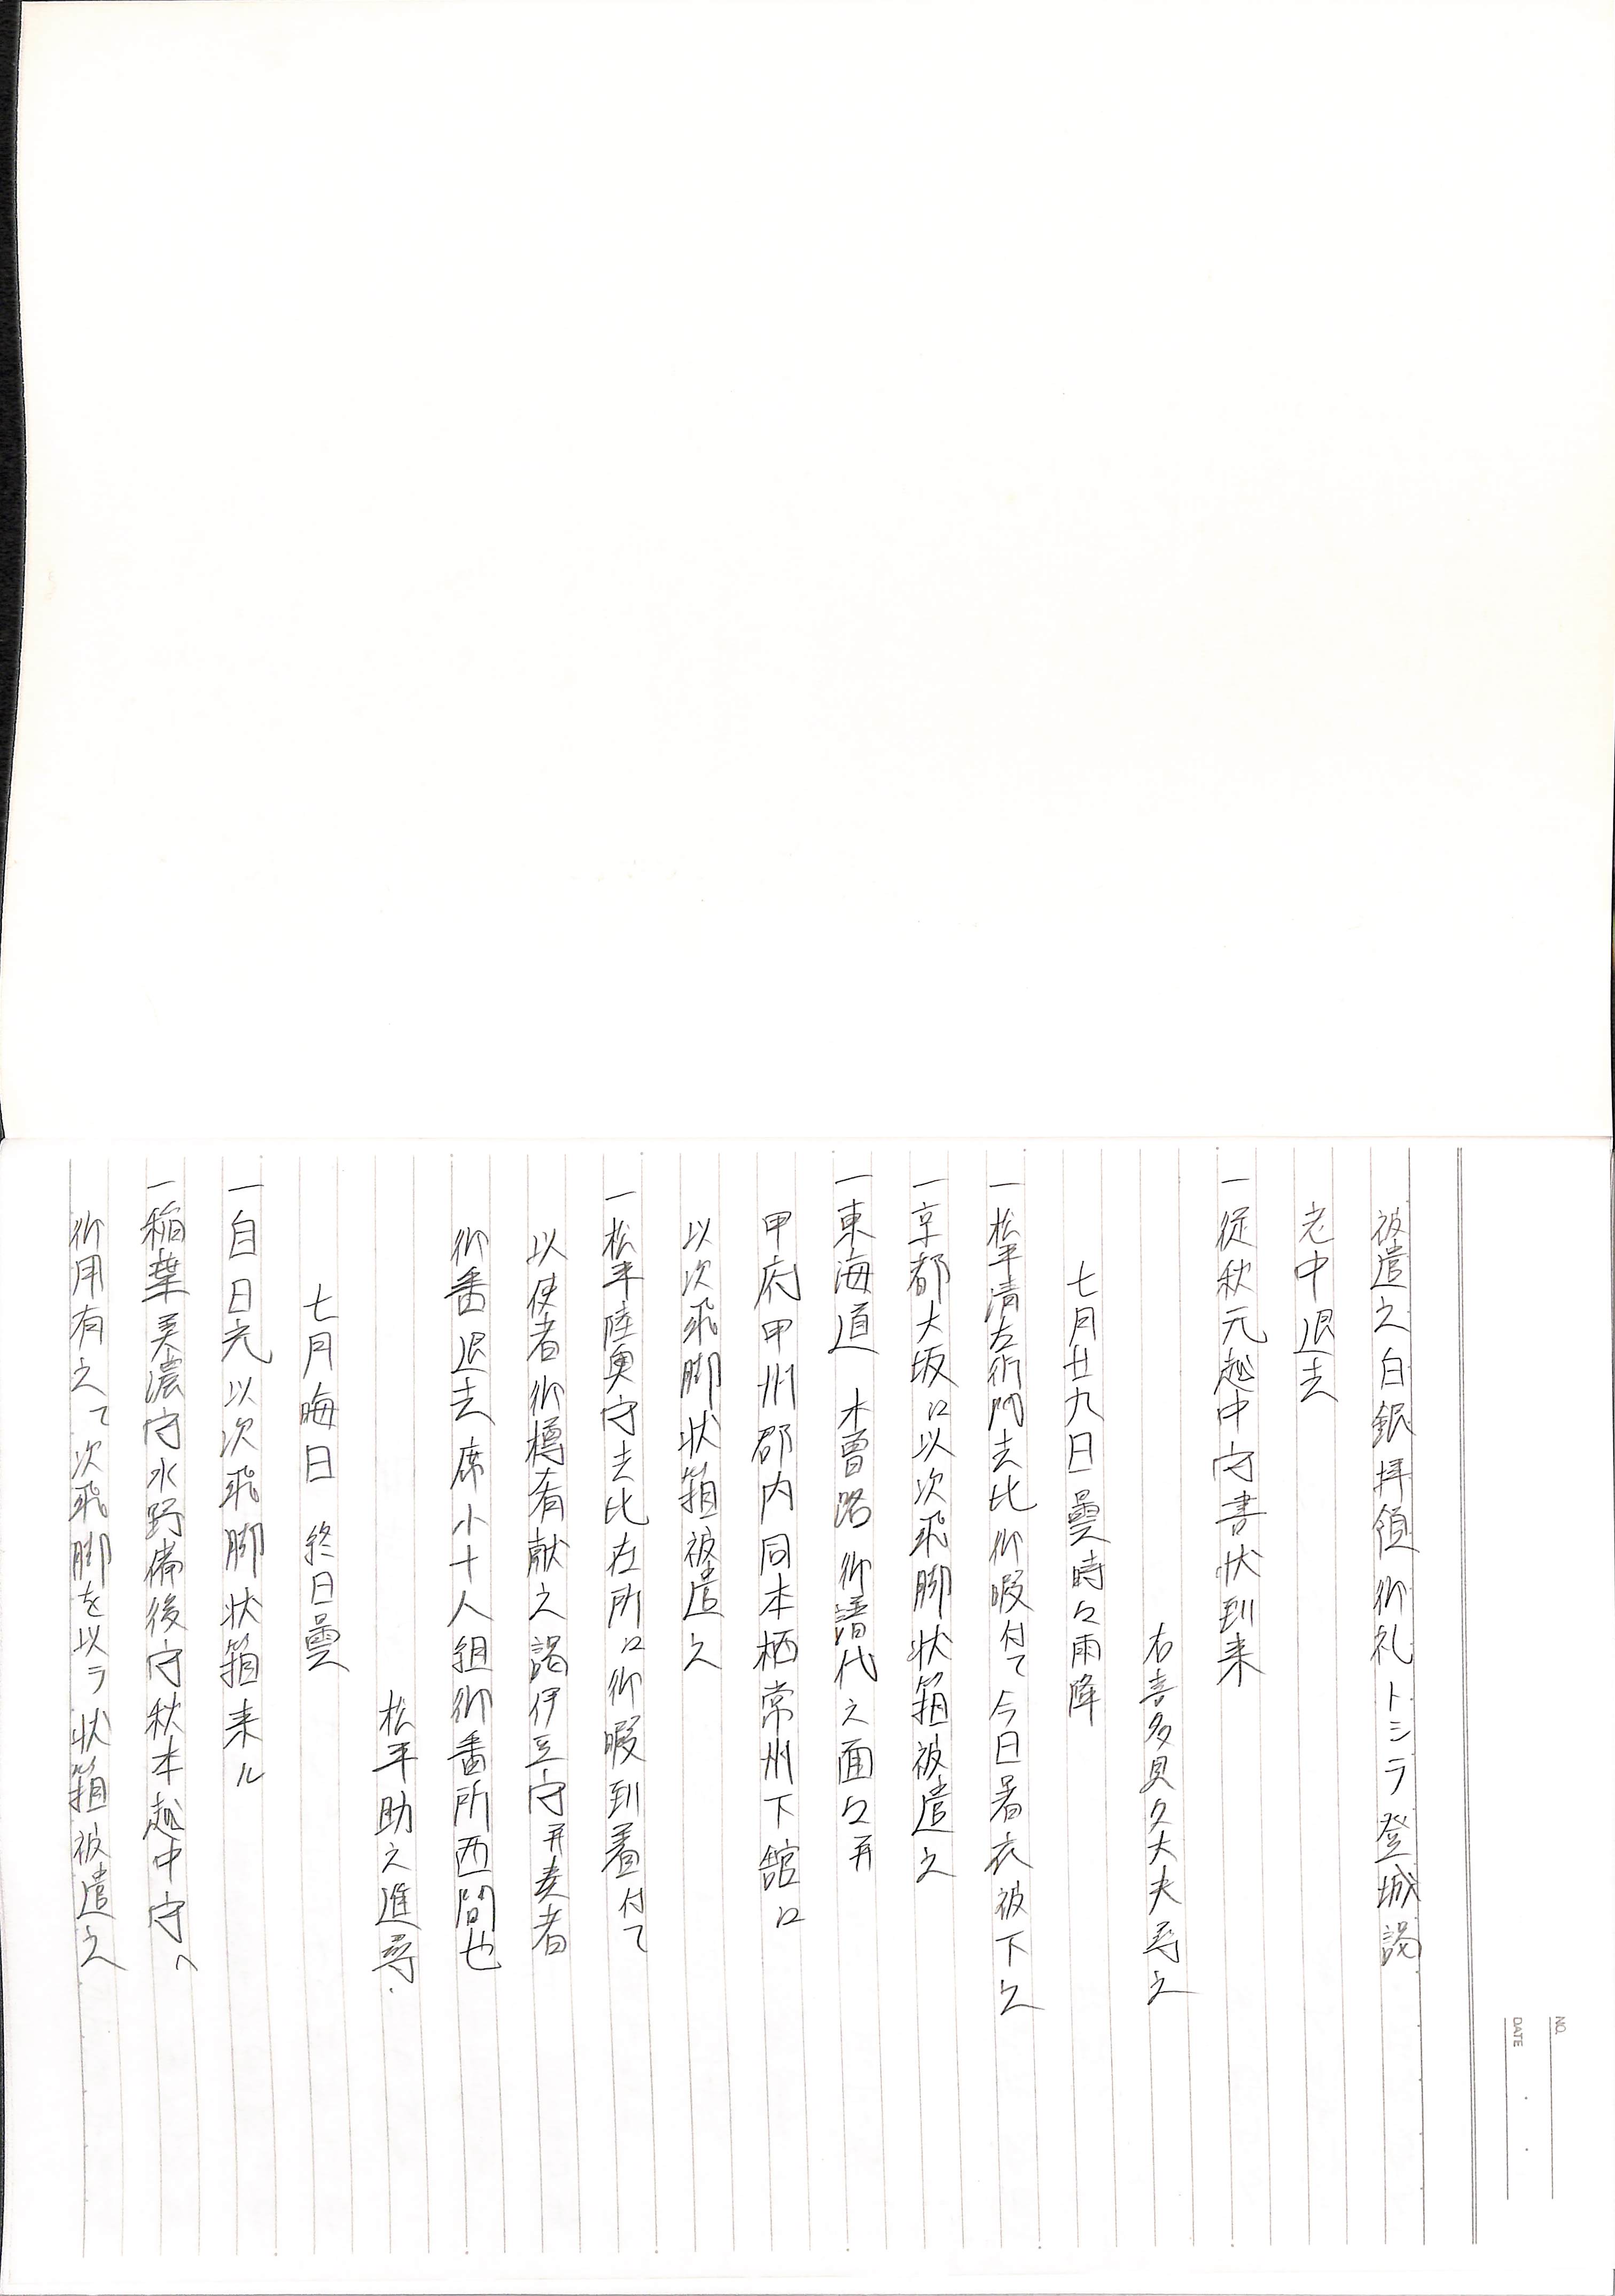 NO.
DATE
被遣之白銀拝領御礼トシテ登城謁
老中退去
一従秋元越中守書状到来
右喜多見久大夫尋之
七月廿九日曇時々雨降
一松平清左衛門去比御暇付て今日暑衣被下之
一京都大坂江以次飛脚状箱被遣之
一東海道 木曽路 御譜代之面々并
甲府甲州郡内同本栖常州下舘江
以次飛脚状箱被遣之
一松平陸奥守去比在所江御暇到着付て
以使者御樽肴献之謁伊豆守并奏者
御番退去席小十人組御番所西間也
松平助之進尋
七月晦日 終日曇
一自日光以次飛脚状箱来ル
一稲葉美濃守水野備後守秋本越中守へ
御用有之て次飛脚を以テ状箱被遣之